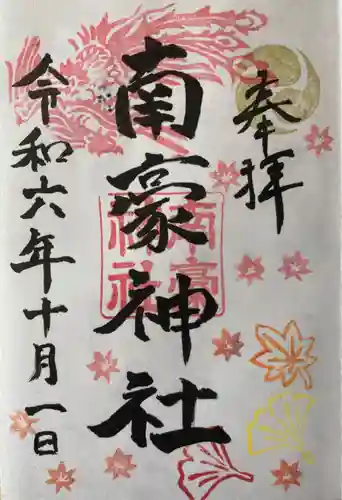 奉拝
南豪神社
南豪神社
令和六年十月一日